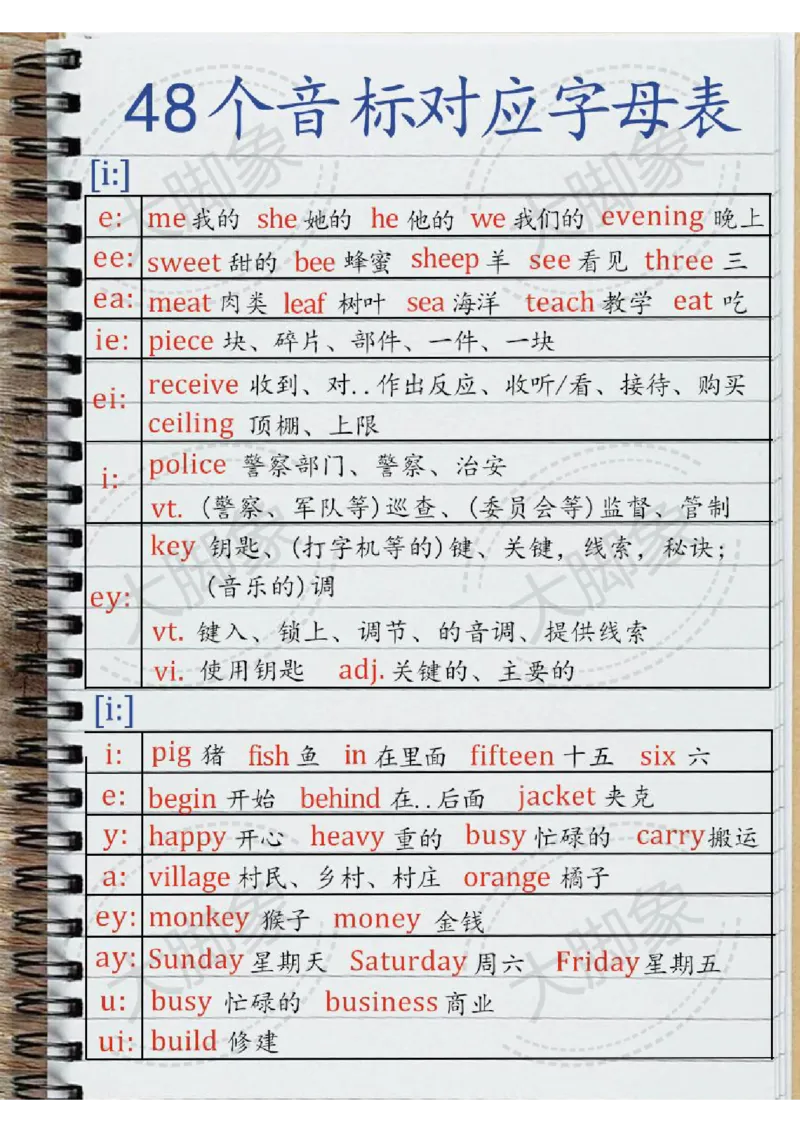 48个音标对应字母表
[i:]
e: me我的 she她的 he他的 we我们的 evening晚上
ee: sweet甜的 bee蜂蜜 sheep羊 see看见 three三
ea: meat肉类 leaf树叶 sea海洋 teach教学 eat吃
ie: piece块、碎片、部件、一件、一块
ei: receive 收到、对..作出反应、收听/看、接待、购买
ceiling 顶棚、上限
i: police 警察部门、警察、治安
vt. (警察、军队等)巡查、(委员会等)监督、管制
ey: key 钥匙、(打字机等的)键、关键，线索，秘诀；
(音乐的)调
vt. 键入、锁上、调节、的音调、提供线索
vi. 使用钥匙 adj.关键的、主要的
[i:]
i: pig猪 fish鱼 in在里面 fifteen十五 six六
e: begin开始 behind在..后面 jacket夹克
y: happy开心 heavy重的 busy忙碌的 carry搬运
a: village村民、乡村、村庄 orange橘子
ey: monkey猴子 money金钱
ay: Sunday星期天 Saturday周六 Friday星期五
u: busy忙碌的 business商业
ui: build修建
大脚象
大脚象
大脚象
大脚象
大脚象
大脚象